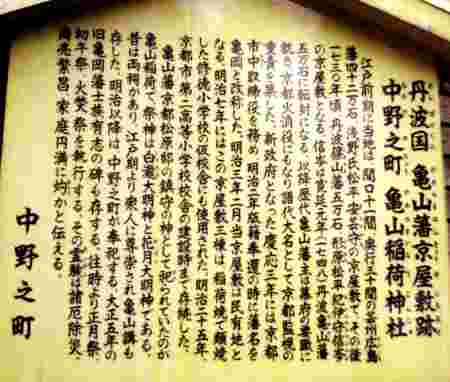 丹波国 亀山藩京屋敷跡
中野之町 亀山稲荷神社
江戸前期に当地は、間口十一間、奥行三十間の芸州広島
藩四十二万石 浅野氏松平安芸守の京屋敷で、その後
一七三〇年頃、丹波篠山藩五万石 形原松平紀伊守信岑
の京屋敷となる。信岑は寛延元年(一七四八)丹波亀山藩
五万石に転封になる。以降歴代亀山藩主は幕府の要職に
就き京都火消役にもなり譜代大名として京都監視の
重責を果した。新政府となった慶応三年には京都
市中取締役を務め 明治二年版籍奉還の時に藩名を
亀岡と改称した。明治三年二月当京屋敷は民有地と
なる。明治七年にはこの京屋敷三棟は、稲荷焼で類焼
した修徳小学校の仮校舎にも使用された。明治二十五年、
京都市第二高等小学校校舎の建設時まで存続した。
亀山藩京都松原邸の鎮守の神として祀られていたのが
亀山稲荷で、祭神は白瀧大明神と花月大明神である。
昔は両祠があり、江戸期より衆人に尊崇され亀山講も
存した。明治以降は中野之町が奉祀する。大正五年の
旧亀岡藩士族有志の碑も存する。往時より正月祭、
初午祭、火焚祭を執行する。その霊験は諸厄除災、
商売繁昌、家庭円満に灼かと伝える。
中野之町